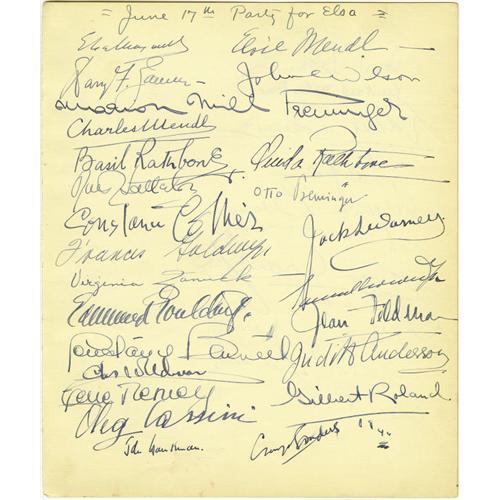 = June 17th Party for Elsa =
Elsa Maxwell
Elsie Mendl
Harry F.
John C Wilson
Marion Mill Preminger
Charles Mendl
Basil Rathbone
Ouida Rathbone
Otto Preminger
Constance Collier
Jack L Warner
Frances Goldwyn
Virginia Zanuck
Edmund Goulding
Jean Feldman
Constance Bennett
Judith Anderson
Gene Tierney
Gilbert Roland
Oleg Cassini
George Sanders